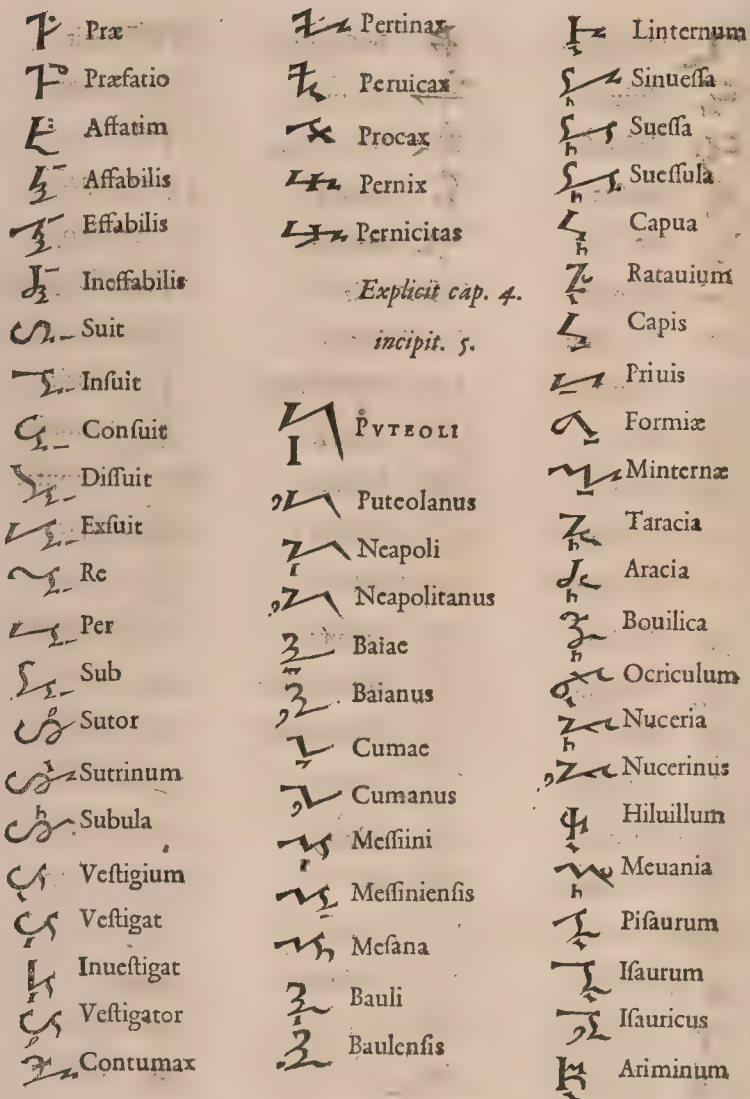 Præ
Præfatio
Affatim
Affabilis
Effabilis
Ineffabilis
Suit
Inſuit
Conſuit
Diſſuit
Exſuit
Re
Per
Sub
Sutor
Sutrinum
Subula
Veſtigium
Veſtigat
Inueſtigat
Veſtigator
Contumax
Pertinax
Peruicax
Procax
Pernix
Pernicitas
Explicit cap. 4.
incipit. 5.
PVTEOLI
Puteolanus
Neapoli
Neapolitanus
Baiae
Baianus
Cumae
Cumanus
Meſſiini
Meſſinienſis
Meſana
Bauli
Baulenſis
Linternum
Sinueſſa
Sueſſa
Sueſſula
Capua
Ratauium
Capis
Priuis
Formiæ
Minternæ
Taracia
Aracia
Bouilica
Ocriculum
Nuceria
Nucerinus
Hiluillum
Meuania
Piſaurum
Iſaurum
Iſauricus
Ariminum